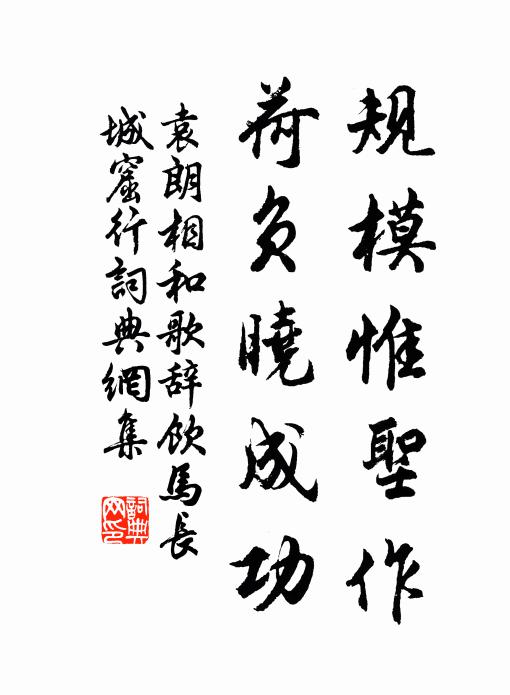 規模惟聖作
荷負曉成功
袁朗相和歌辞飲馬長
城窟行詞典網集
詞典
网印